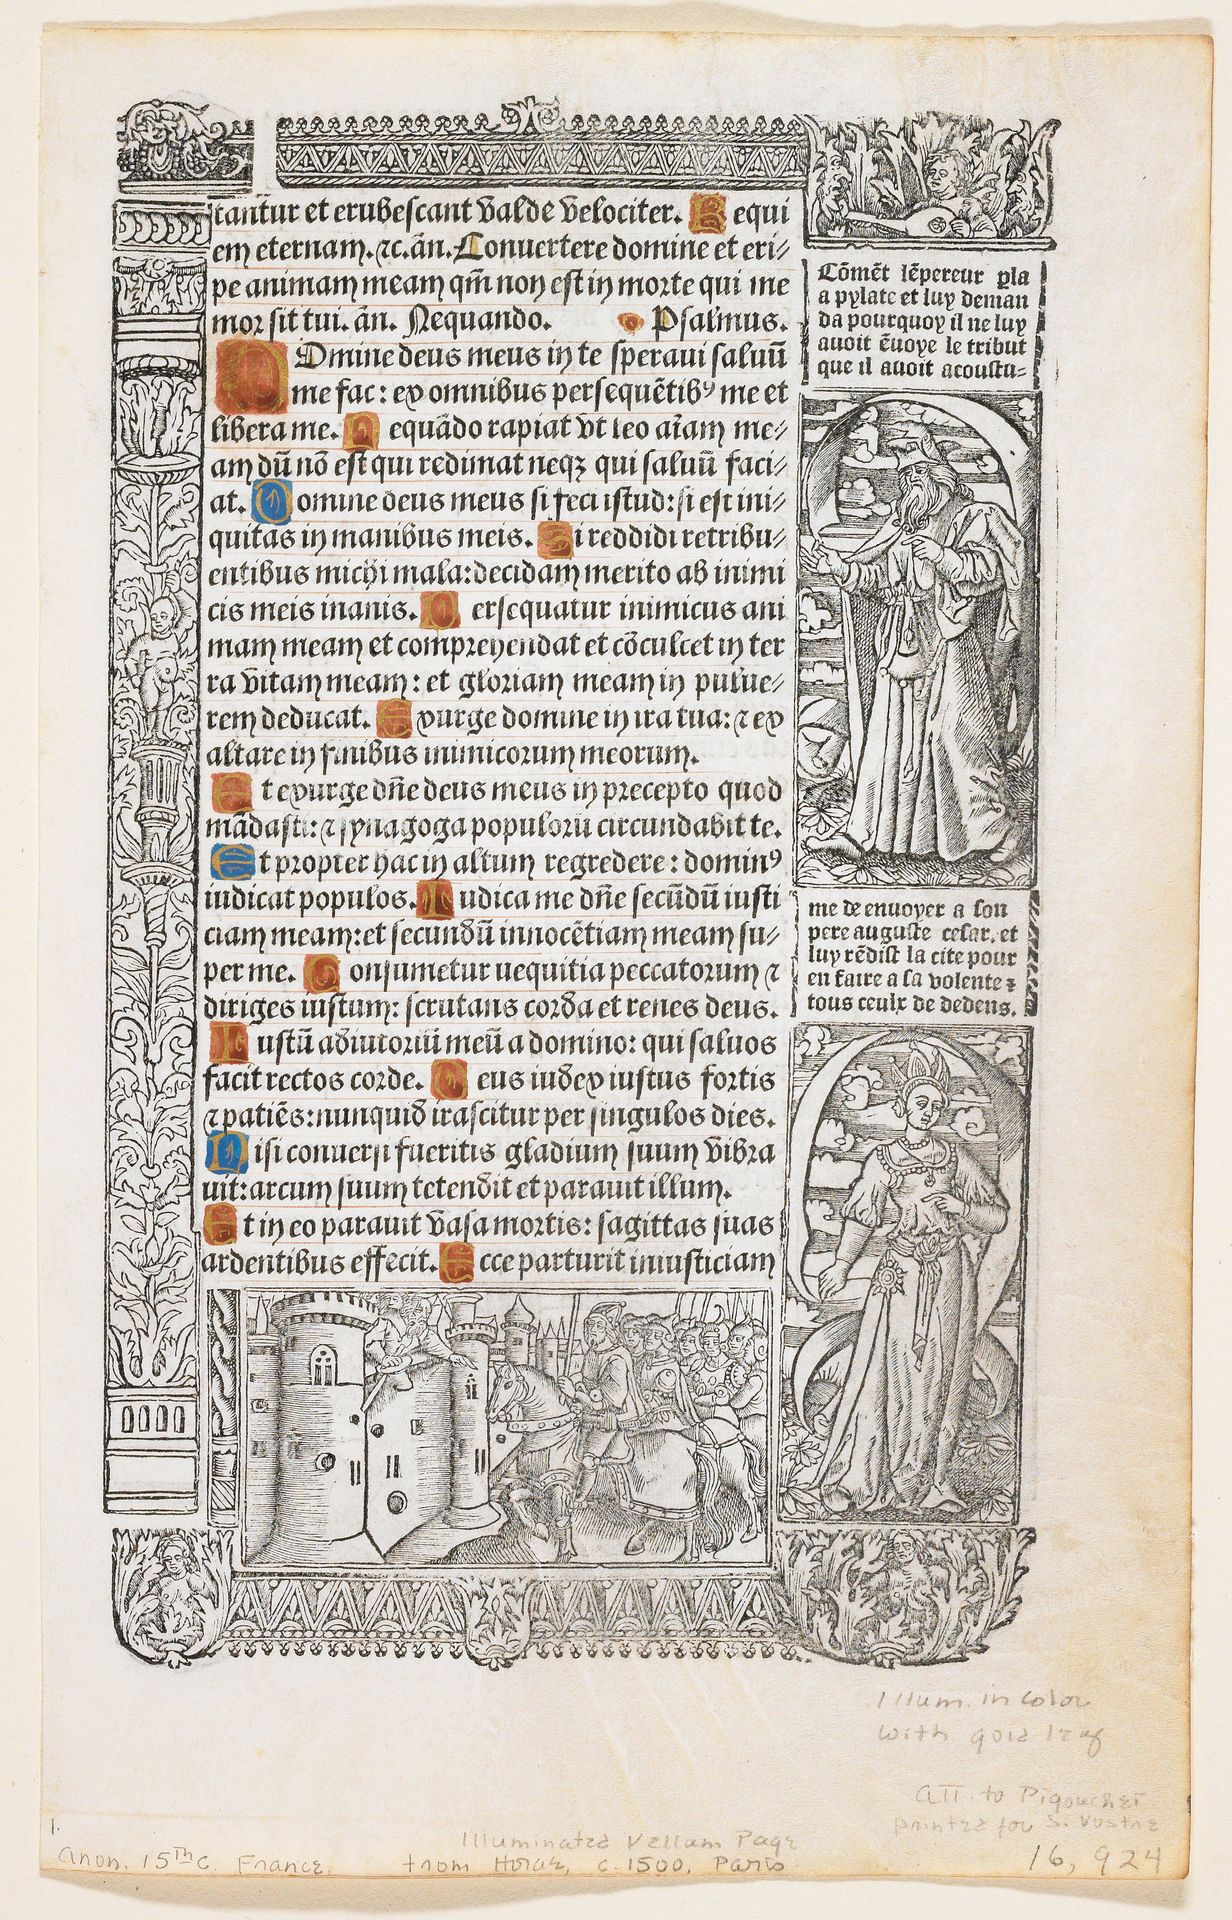 tantur et erubescant valde velociter. Requi
em eternam. ⁊c. añ. Convertere domine et eri⸗
pe animam meam qm̃ non est in morte qui me
mor sit tui. añ. Nequando. Psalmus.
DOmine deus meus in te speravi salvũ
me fac: ex omnibus persequẽtibꝰ me et
libera me. Nequãdo rapiat vt leo aĩam me⸗
am dũ nõ est qui redimat neqꝫ qui salvũ faci⸗
at. Domine deus meus si feci istud: si est ini⸗
quitas in manibus meis. Si reddidi retribu⸗
entibus michi mala: decidam merito ab inimi
cis meis inanis. Persequatur inimicus ani
mam meam et comprehendat et cõculcet in ter
ra vitam meam: et gloriam meam in pulve⸗
rem deducat. Exurge domine in ira tua: ⁊ ex
altare in finibus inimicorum meorum.
Et exurge dñe deus meus in precepto quod
mãdasti: ⁊ synagoga populorũ circundabit te.
Et propter hac in altum regredere: dominꝰ
iudicat populos. Iudica me dñe secũdũ iusti
ciam meam: et secundũ innocẽtiam meam su⸗
per me. Consumetur nequitia peccatorum ⁊
diriges iustum: scrutans corda et renes deus.
Iustũ adiutoriũ meũ a domino: qui salvos
facit rectos corde. Deus iudex iustus fortis
⁊ patiẽs: nunquid irascitur per singulos dies.
Nisi conversi fueritis gladium suum vibra
vit: arcum suum tetendit et paravit illum.
Et in eo paravit vasa mortis: sagittas suas
ardentibus effecit. Ecce parturit iniusticiam
Cõmẽt lẽpereur pla
a pylate et luy deman
da pourquoy il ne luy
avoit ẽvoye le tribut
que il avoit acoustu⸗
me de envoyer a son
pere auguste cesar. et
luy rẽdist la cite pour
en faire a sa volente ⁊
tous ceulx de dedens.
Illum. in color
with gold leaf
att. to Pigouchet
printed for S. Vostre
1.
anon. 15th c. France.
Illuminated Vellum Page
from Horae, c. 1500, Paris
16,924